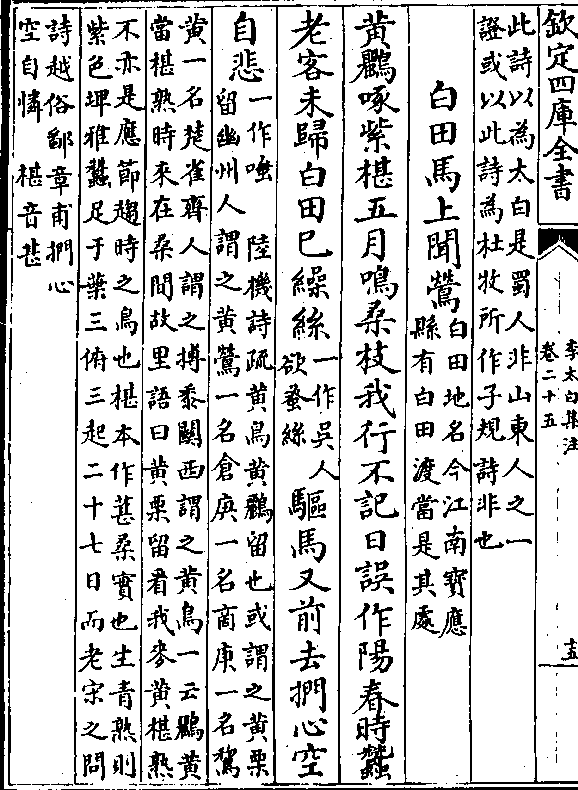 欽定四庫全書
李太白集注
卷二十五
十五
此詩以為太白是蜀人非山東人之一
證或以此詩為杜牧所作子規詩非也
白田馬上聞鶯
白田地名今江南寶應
縣有白田渡當是其處
黄鸝啄紫椹五月鳴桑枝我行不記日誤作陽春時蠶
老客未歸白田已繰絲
一作吳人
欲蠶絲
驅馬又前去捫心空
自悲
一作嗤
陸機詩疏黄鳥黄鸝留也或謂之黄栗
留幽州人謂之黄鶯一名倉庚一名商庚一名鵹
黄一名楚雀齊人謂之摶黍闗西謂之黄鳥一云鸝黄
當椹熟時來在桑間故里語曰黄栗留看我麥黄椹熟
不亦是應節趨時之鳥也椹本作葚桑實也生青熟則
紫色埤雅蠶足于葉三俯三起二十七日而老宋之問
詩越俗鄙章甫捫心
空自憐
椹音甚